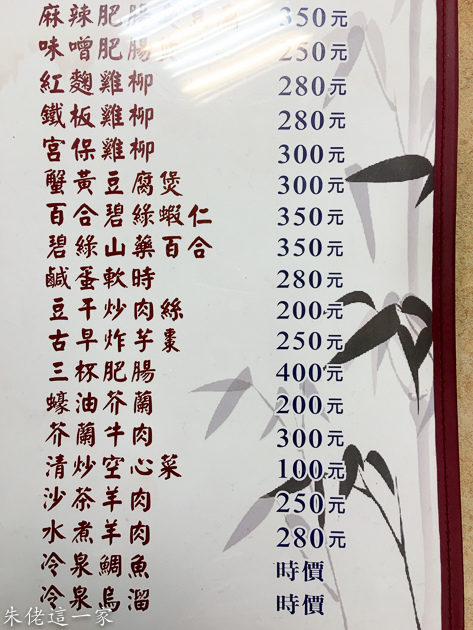 麻辣肥腸 350元
味噌肥腸 250元
紅麴雞柳 280元
鐵板雞柳 280元
宮保雞柳 300元
蟹黃豆腐煲 300元
百合碧綠蝦仁 350元
碧綠山藥百合 350元
鹹蛋軟時 280元
豆干炒肉絲 200元
古早炸芋棗 250元
三杯肥腸 400元
蠔油芥蘭 200元
芥蘭牛肉 300元
清炒空心菜 100元
沙茶羊肉 250元
水煮羊肉 280元
冷泉鯛魚 時價
冷泉烏溜 時價
朱佬這一家